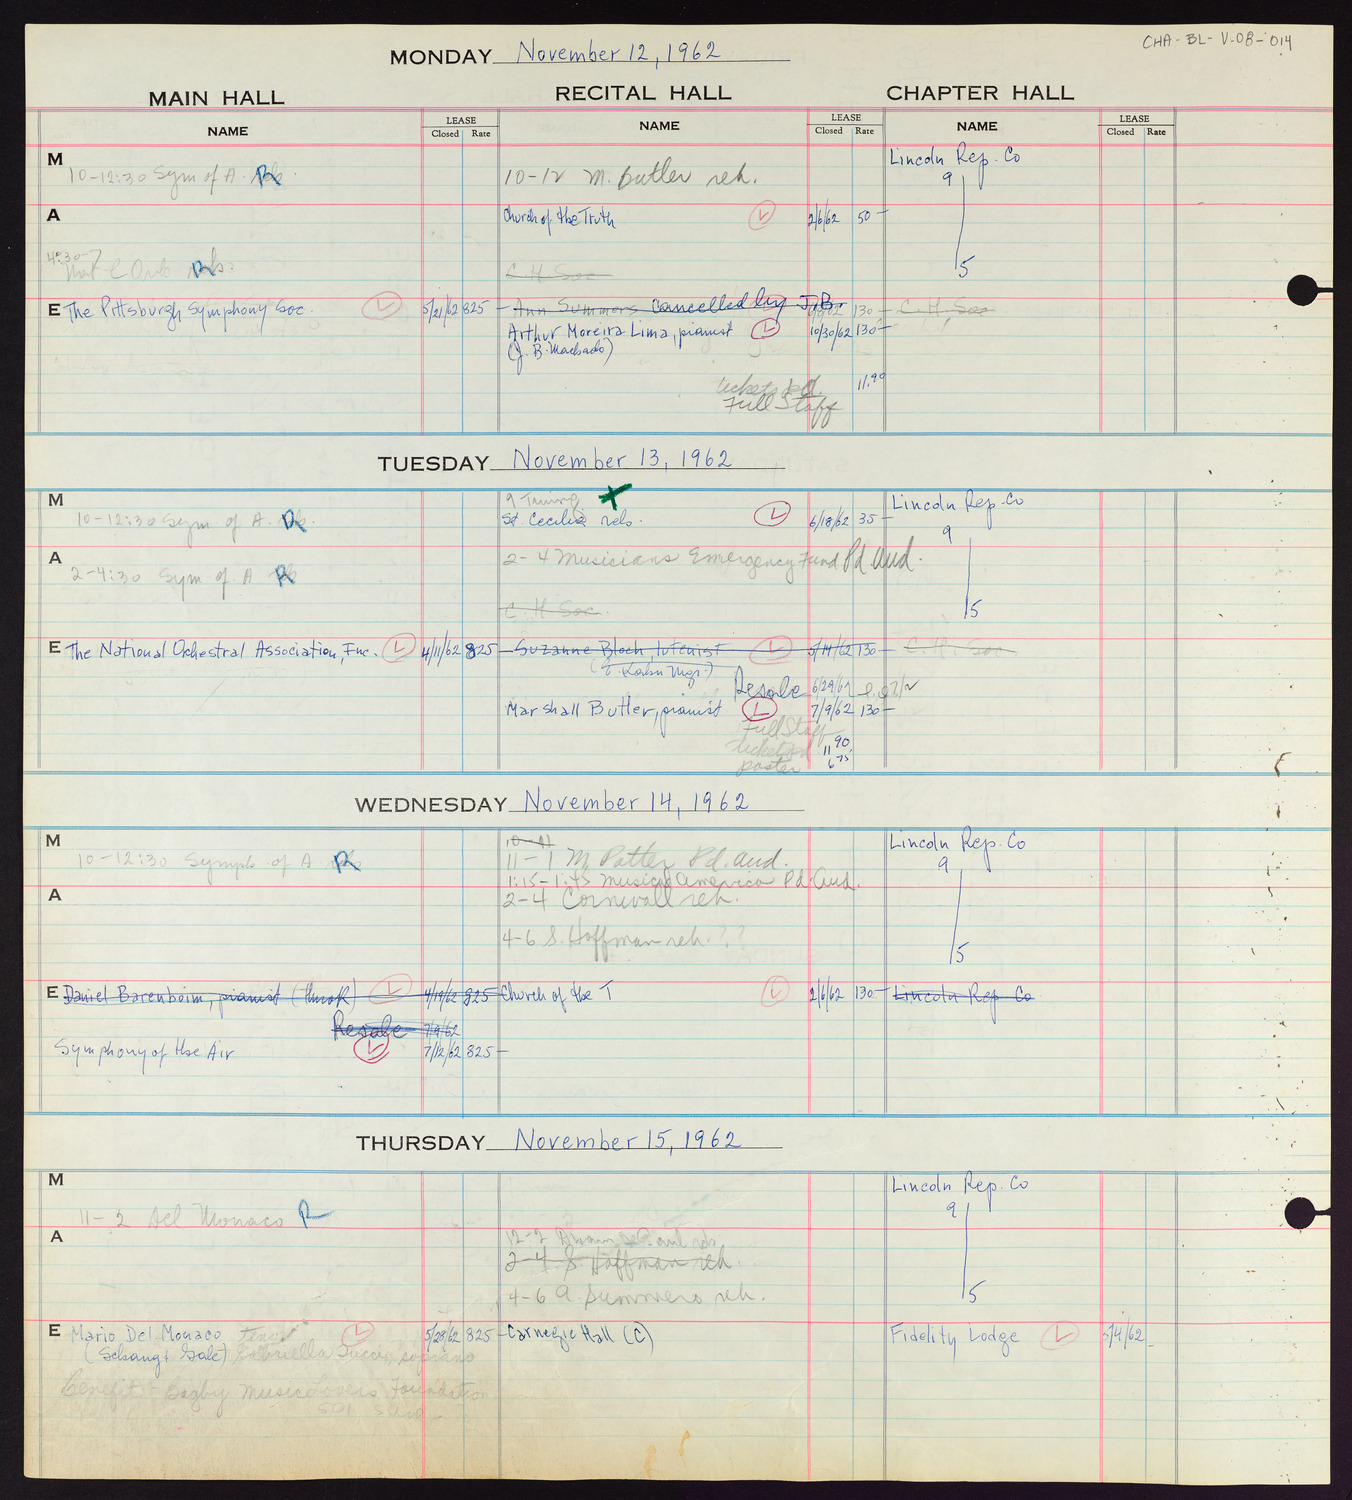 CHA-BL-V-08-014
MONDAY November 12, 1962
MAIN HALL RECITAL HALL CHAPTER HALL
NAME LEASE Closed Rate NAME LEASE Closed Rate NAME LEASE Closed Rate
M
10-12:30 Sym of A. R
10-12 M. Butler reh.
Lincoln Rep. Co
9
5
A
Church of the Truth L 2/6/62 50-
4:30-7
Nat'l Orch R
C. H. Soc
E The Pittsburgh Symphony Soc. L 5/21/62 825-
Ann Summers Cancelled by J.B. 130- C. H. Soc
Arthur Moreira Lima, pianist L 10/30/62 130-
(J. B. Machado)
tickets pd. 11.90
Full Staff
TUESDAY November 13, 1962
M
10-12:30 Sym of A. R
9 Tuning
St. Cecilia reh. L 6/18/62 35-
Lincoln Rep. Co
9
5
A
2-4:30 Sym of A R
2-4 Musicians Emergency Fund Pd aud.
C. H. Soc.
E The National Orchestral Association, Inc. L 4/11/62 825-
Suzanne Bloch, lutenist L 5/14/62 130- C. H. Soc.
Resale 6/29/62
Marshall Butler, pianist L 7/9/62 130-
Full Staff
ticket pd 11 90
poster 6 75
WEDNESDAY November 14, 1962
M
10-12:30 Symph. of A R
10-11
11-1 M Potter Pd. aud.
1:15-1:45 Musical America Pd. Aud.
Lincoln Rep. Co
9
5
A
2-4 Cornwall reh.
4-6 S. Hoffman reh. ??
E Daniel Barenboim, pianist (Hurok) L 4/19/62 825-
Church of the T L 2/6/62 130- Lincoln Rep Co
Resale 7/9/62
Symphony of the Air L 7/12/62 825-
THURSDAY November 15, 1962
M
11-2 Del Monaco R
Lincoln Rep. Co
9
5
A
12-2
2-4 S. Hoffman reh.
4-6 A. Summers reh.
E Mario Del Monaco tenor L 5/28/62 825-
Carnegie Hall (C)
Fidelity Lodge L 5/4/62
(Schang & Gale) Gabriella Tucci, soprano
Benefit - Bagby Music Lovers Foundation